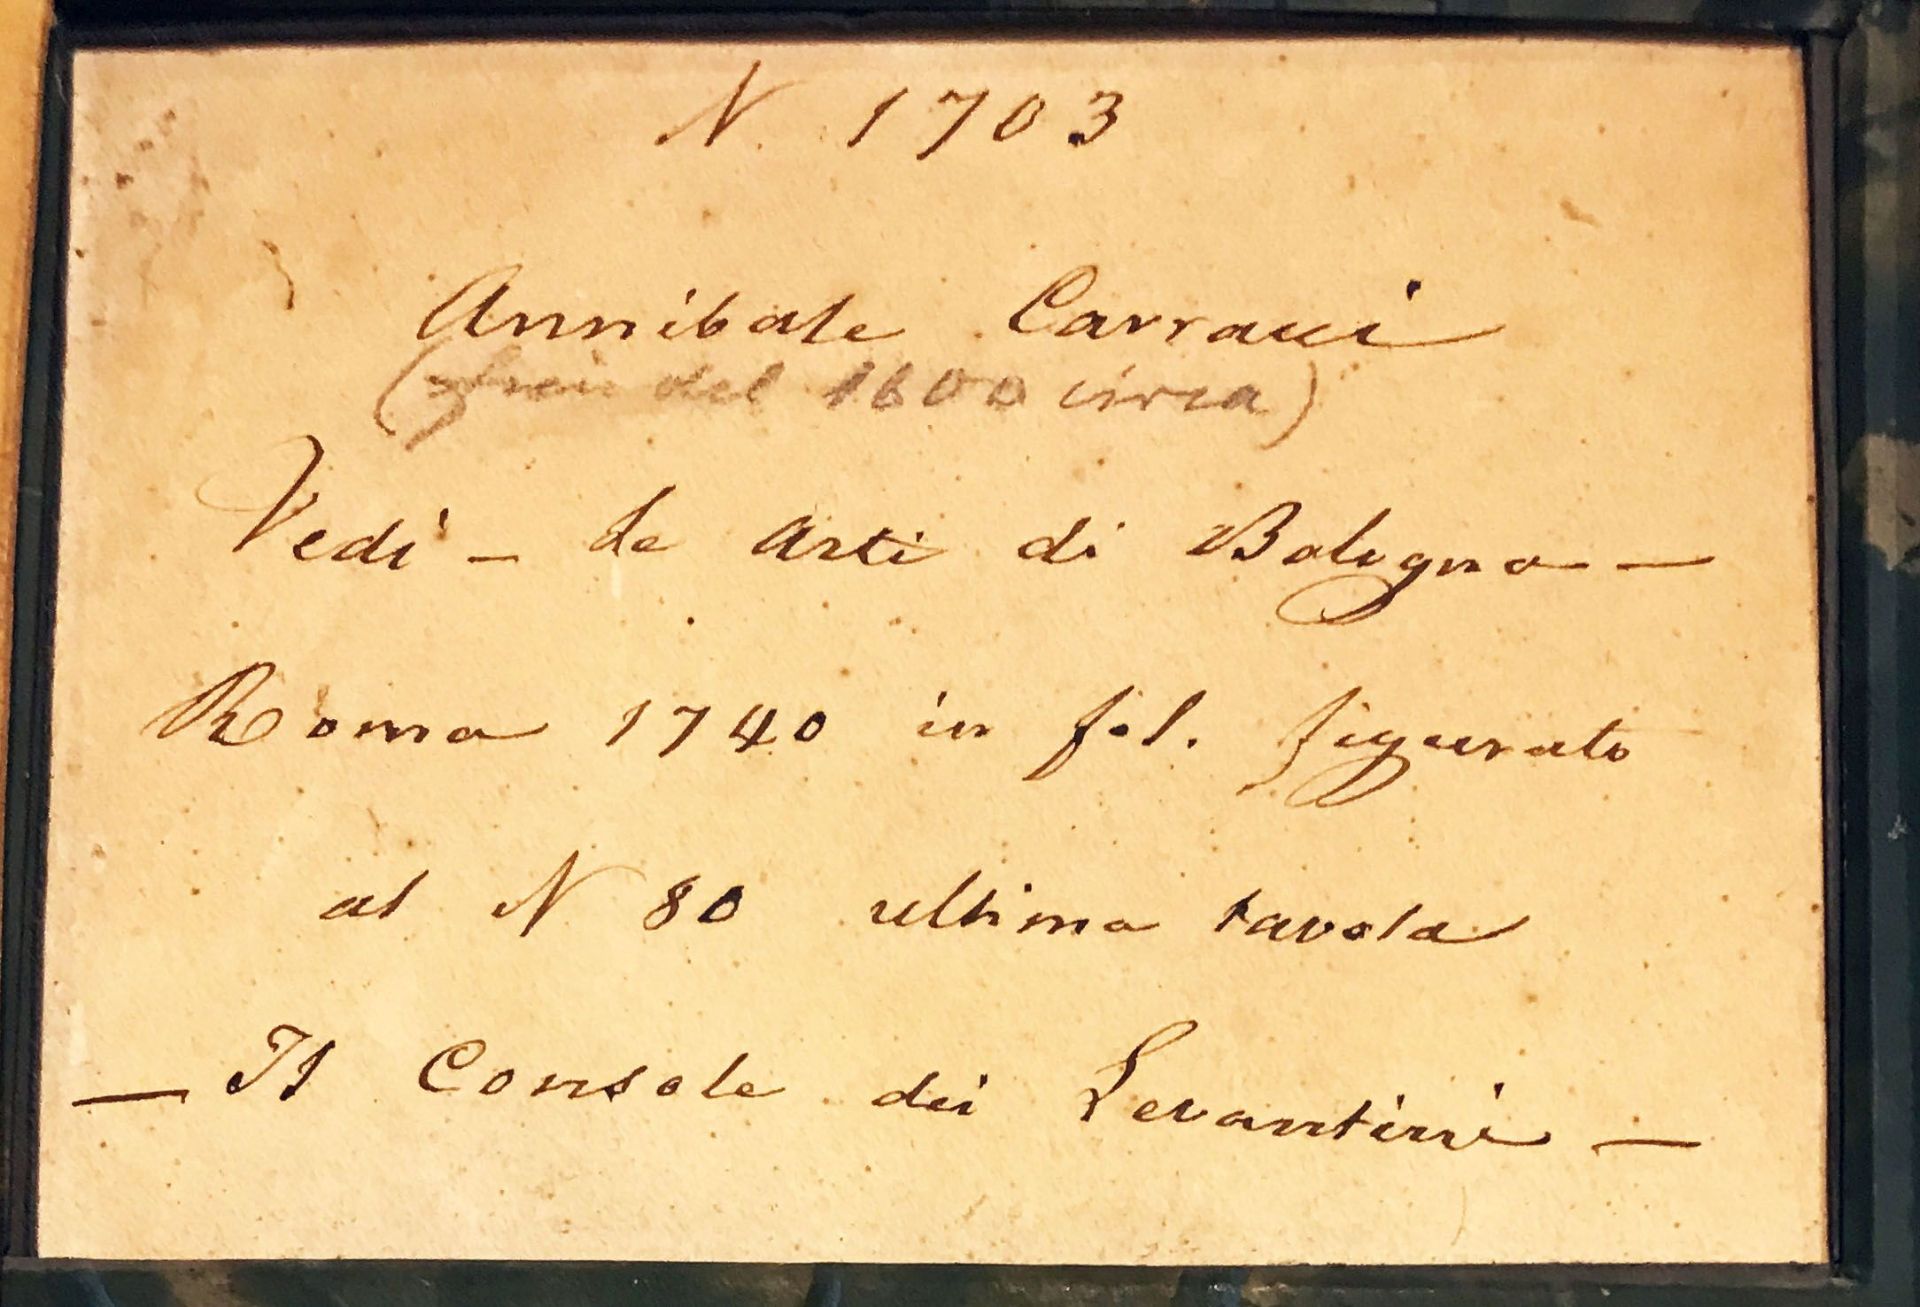 N. 1703
Annibale Carracci
( del 1600 circa)
Vedi - Le Arti di Bologna -
Roma 1740 in fol. figurato
al N 80 ultima tavola
- Il Console dei Levantini -